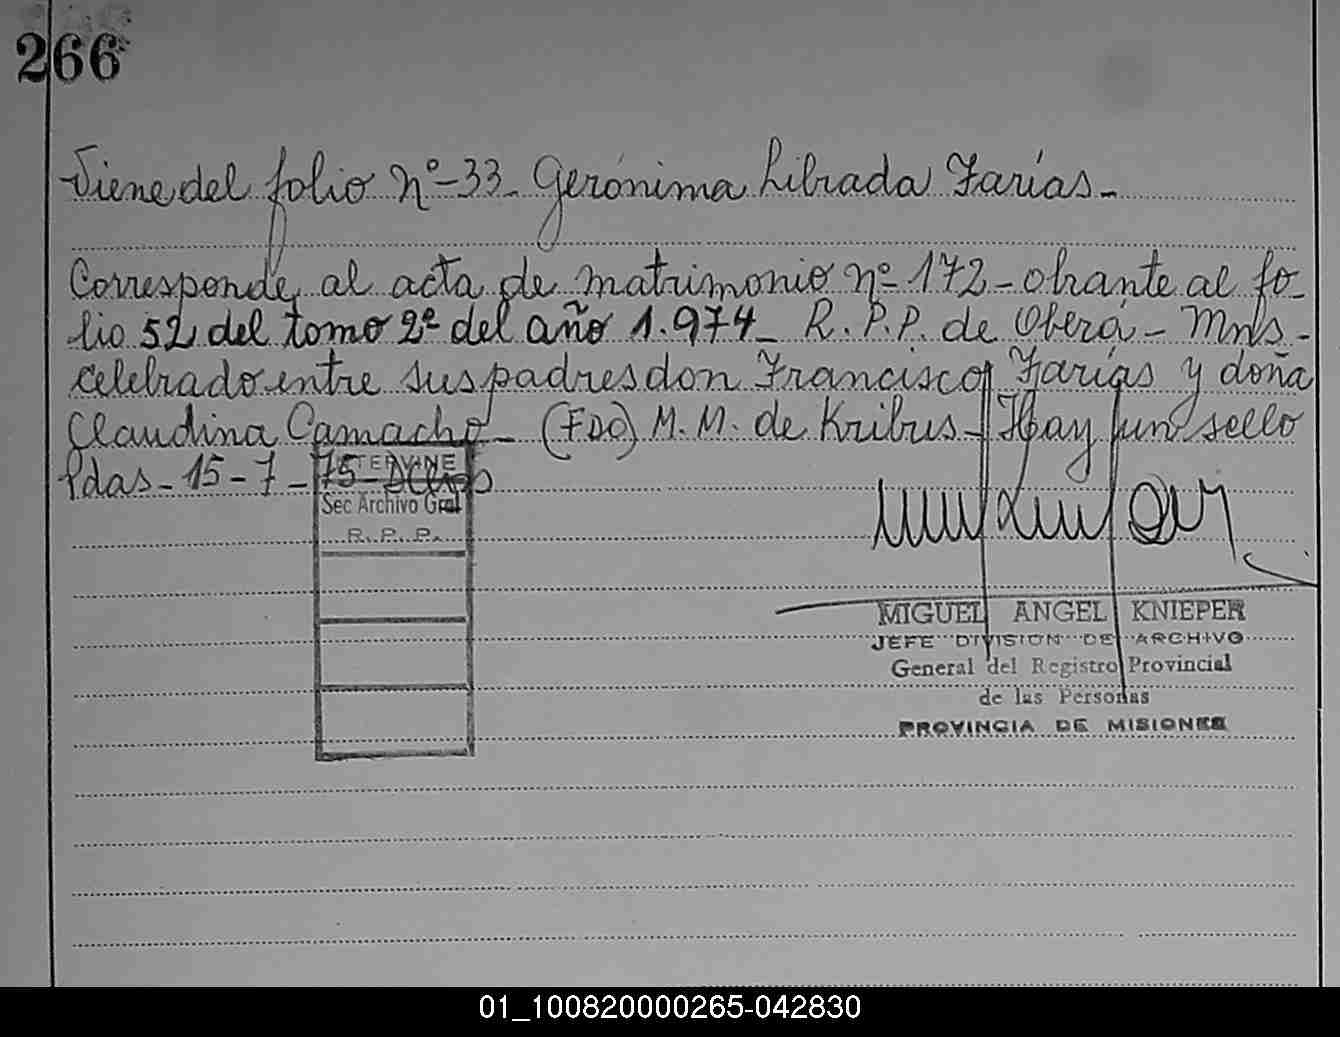 266
Viene del folio Nº-33- Gerónima Librada Farías-
Corresponde al acta de matrimonio nº-172-obrante al fo-
lio 52 del tomo 2º del año 1.974- R.P.P. de Oberá - Mns-
celebrado entre sus padres don Francisco Farías y doña
Claudina Camacho - (FDO) M.M. de Kribus - Hay un sello
Pdas-15-7-75-
INTERVINE
Sec Archivo Gral
R.P.P.
MIGUEL ANGEL KNIEPER
JEFE DIVISION DE ARCHIVO
General del Registro Provincial
de las Personas
PROVINCIA DE MISIONES
01_100820000265-042830